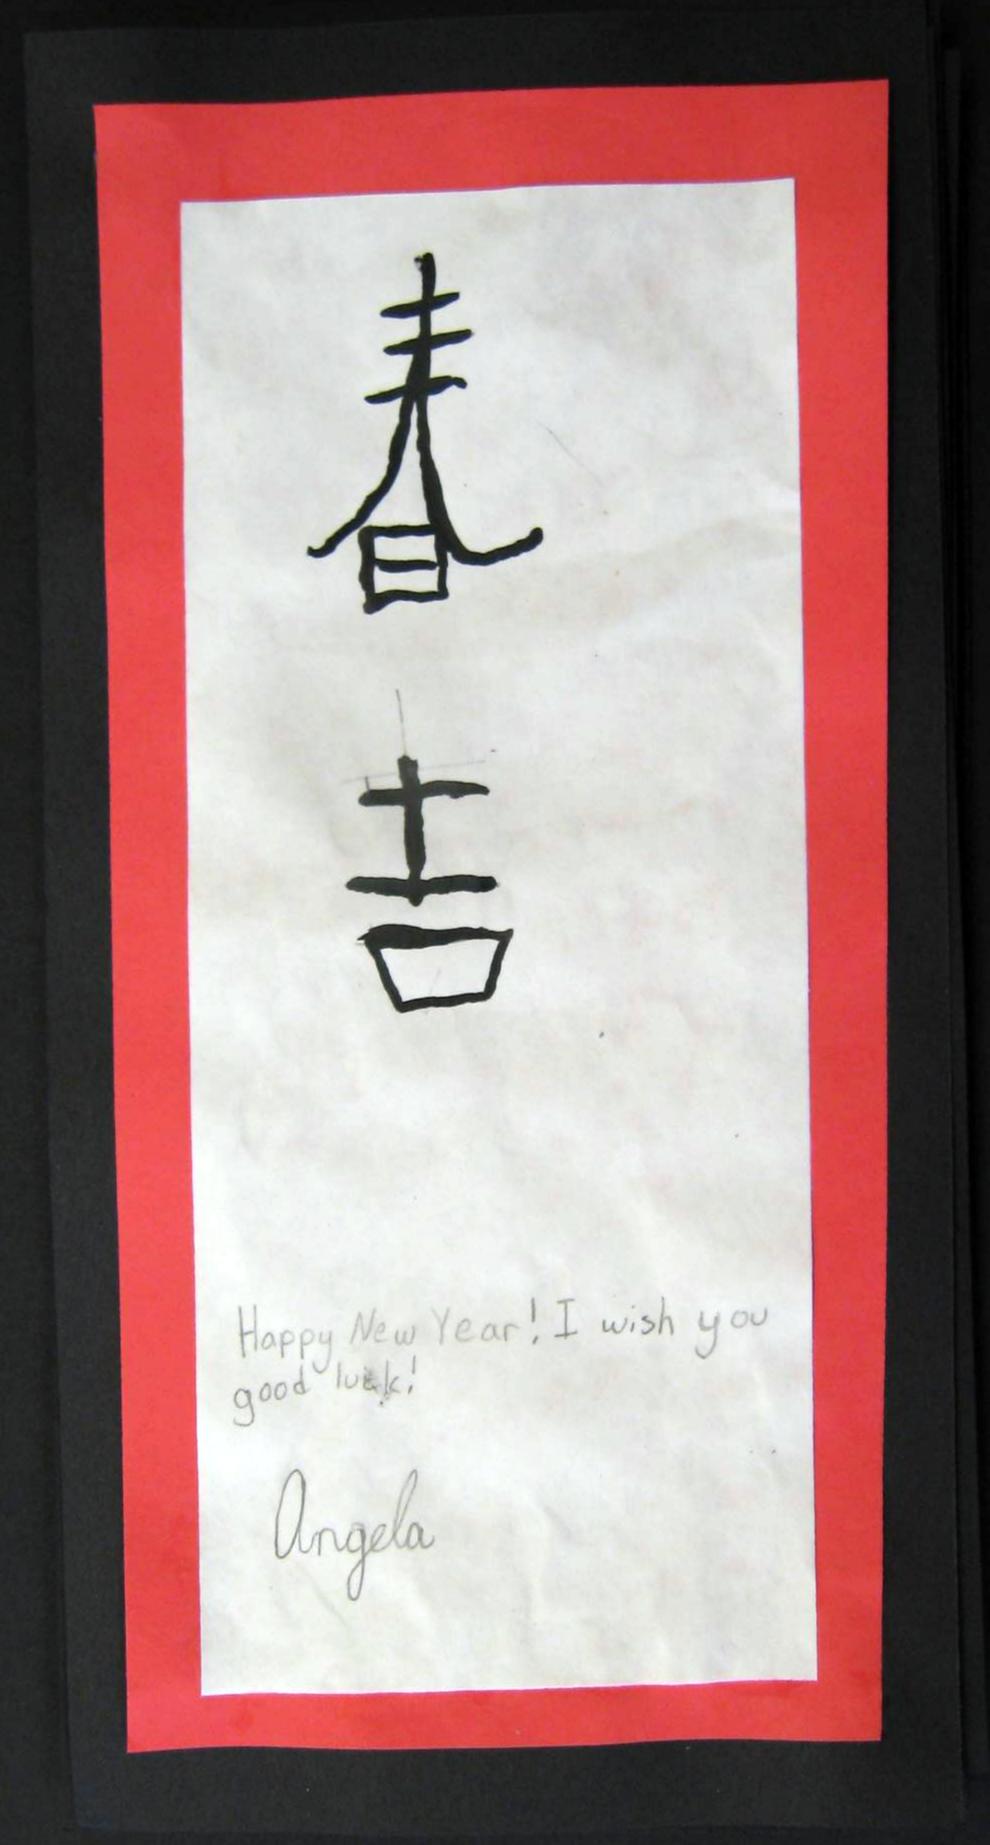 春
吉
Happy New Year! I wish you
good luck!
Angela